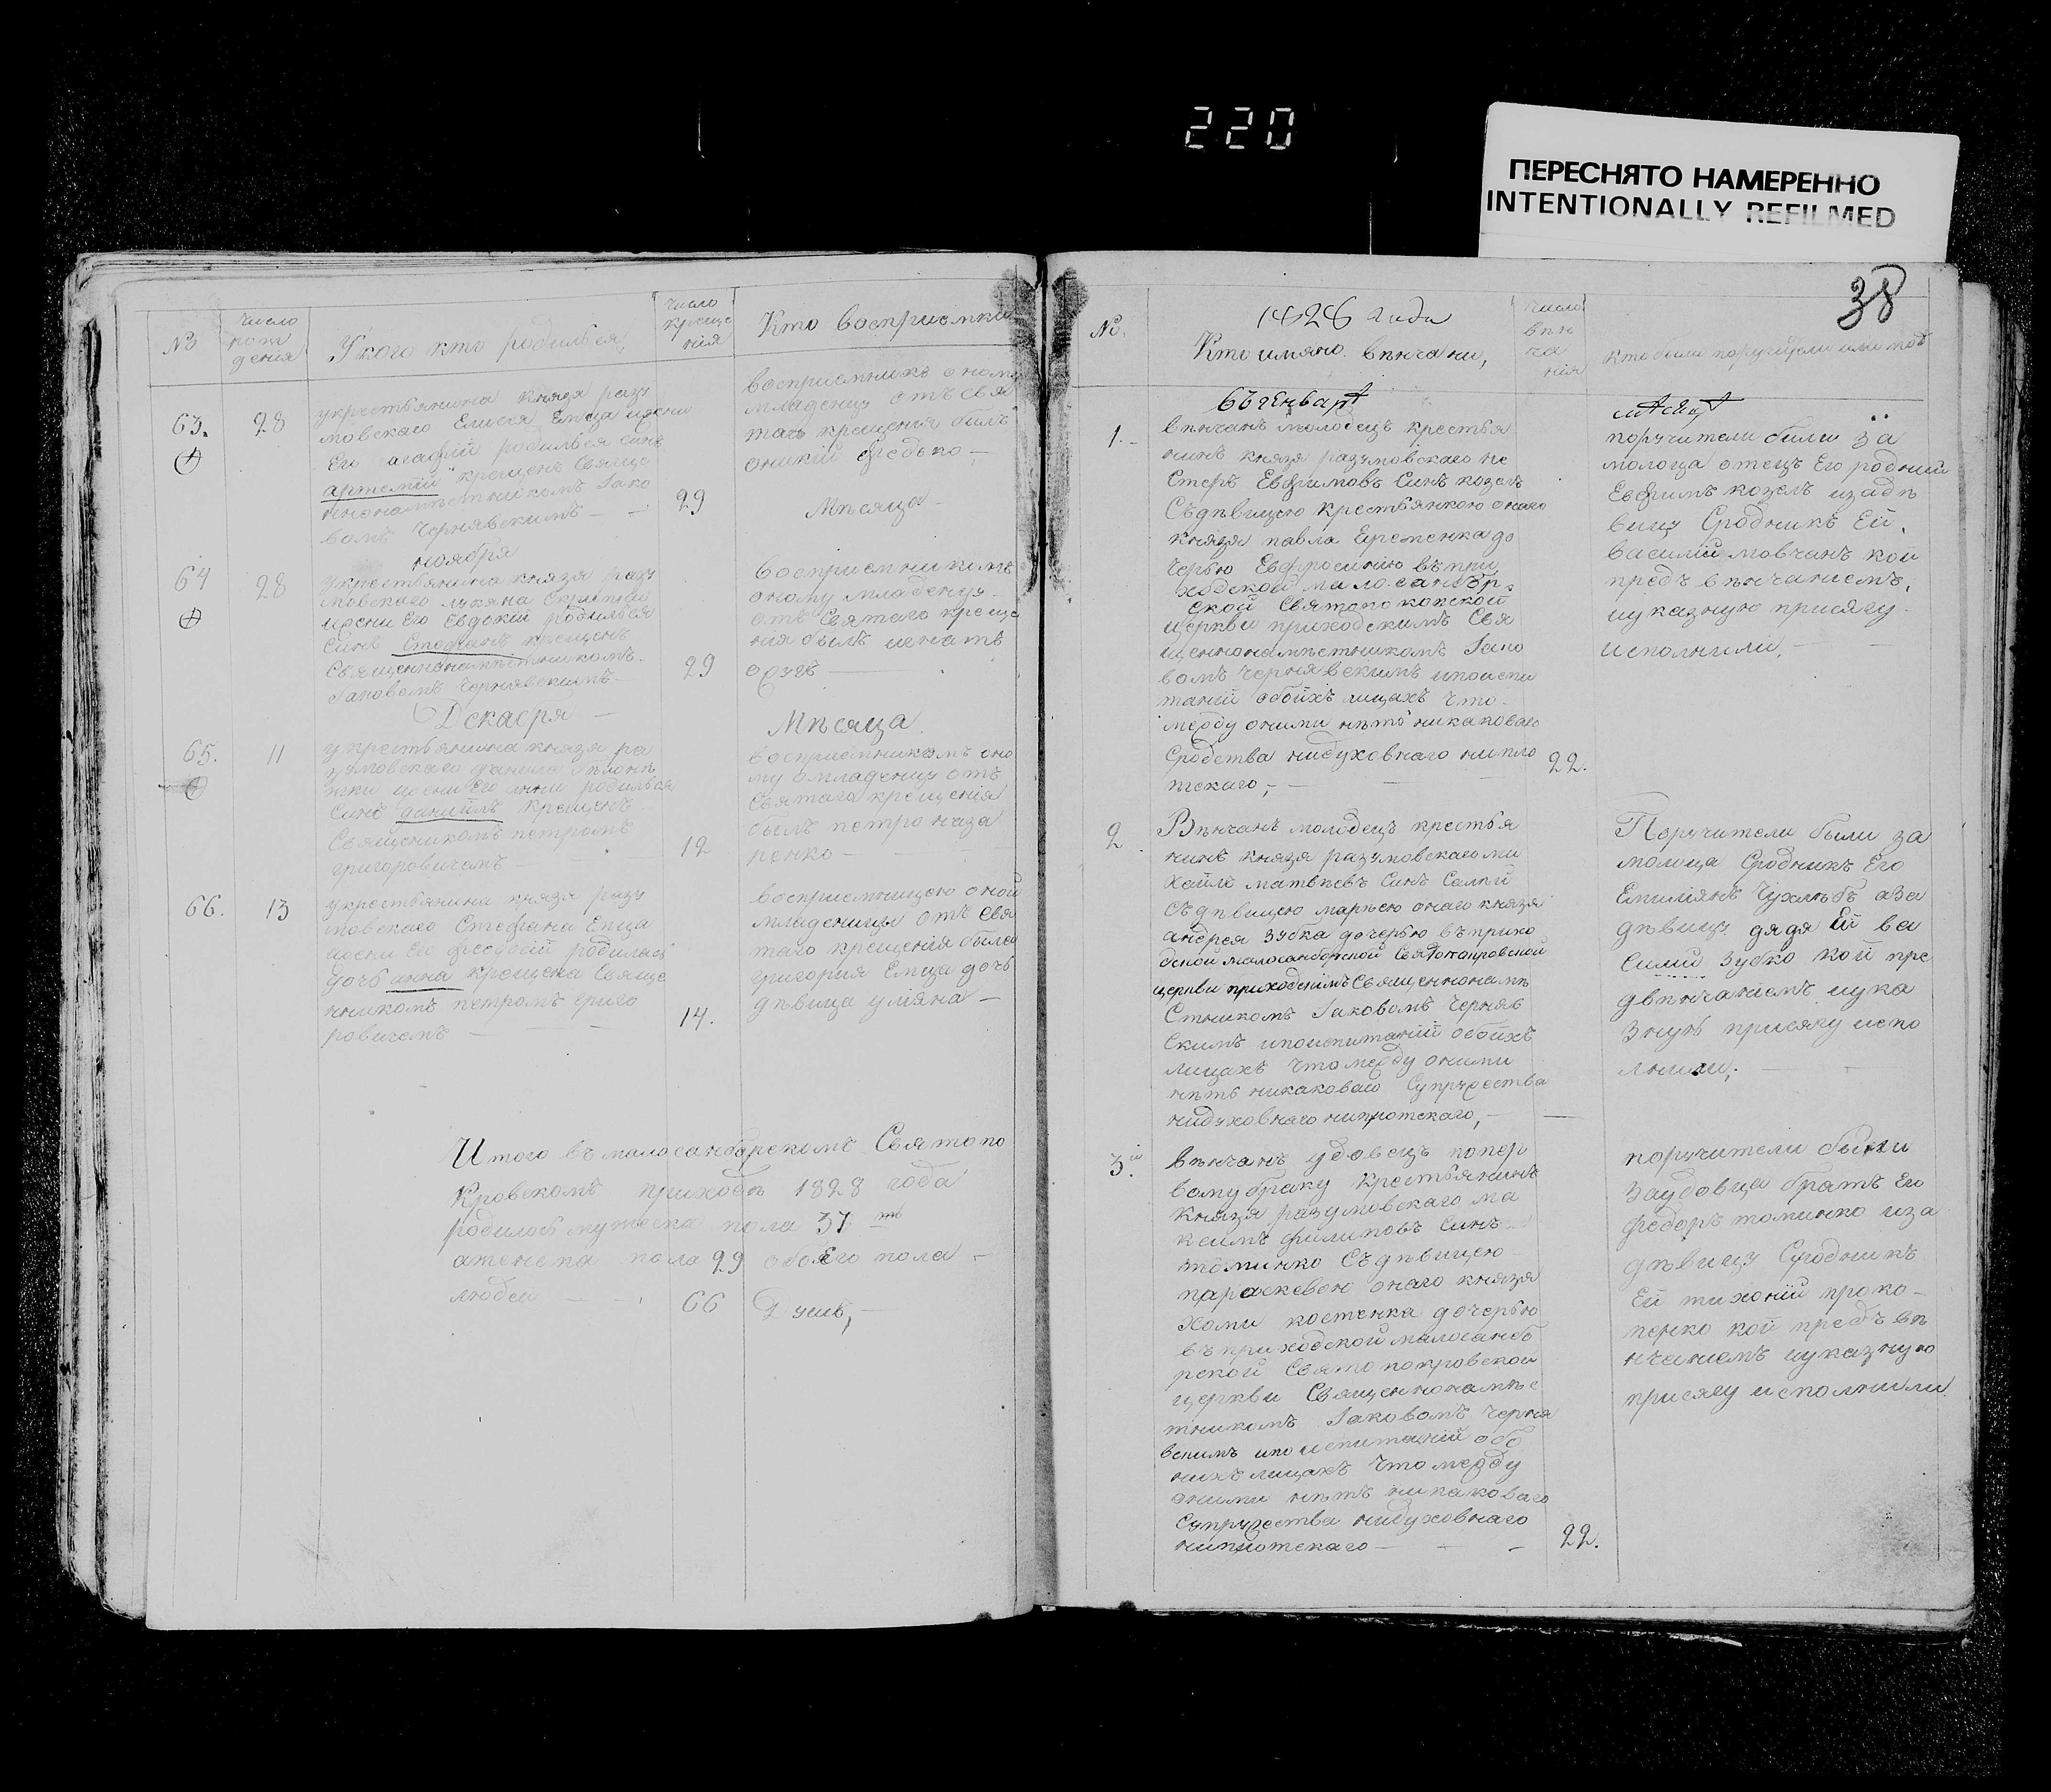 220
ПЕРЕСНЯТО НАМЕРЕННО
INTENTIONALLY REFILMED
38
№
число рож дения
У кого кто родился,
число креще нія
Кто восприемники
63.
28
укрестьянина князя разу
мовскаго Елисея Емца ижени
Его агафіи родилься синъ
артемій крещенъ Свяще
нно намѣстникомъ Іако
вомъ Чернявскимъ
29
восприемникъ оному
младенцу отъ Свя
таго крещенія былъ
оникій Федько
Мѣсяца
ноября
64
28
укрестьянина князя разу
мовскаго лукяна
ижени Его Евдокіи родилься
Синъ Стефанъ крещенъ
Священнонамѣстникомъ
Іаковомъ Чернявскимъ
29
восприемникомъ
оному младенцу
отъ Святаго креще
нія былъ игнатъ
Декабря
Мѣсяца
65.
11
укрестьянина князя ра
зумовскаго данила
жени Его анни родилься
Синъ даніилъ крещенъ
Священикомъ петромъ
григоровичемъ
12
восприемникомъ оно
му младенцу отъ
Святаго крещенія
былъ петро наза
ренко
66.
13
укрестьянина князя разу
мовскаго Стефана Емца
ижени Его феодосіи родилась
дочь анна крещена Свяще
нникомъ петромъ григо
ровичемъ
14.
восприемницею оной
младеницы отъ Свя
таго крещенія была
григория Емца дочь
дѣвица уліяна
Итого въ малосанбарскомъ Святопо
Кровскомъ приходѣ 1828 года
родилось мужеска пола 37
аженска пола 29 обоего пола
людей 66 Душъ,
№.
1828 года
Кто имяно вѣнчани,
число вѣн ча нія
кто были поручители
въ генварѣ
1.
вѣнчанъ молодецъ крестья
нинъ князя разумовскаго не
Стеръ Евфимовъ Синъ козелъ
Съдѣвицею крестьянкою онаго
князя павла Еременка до
черью Евфросиніею въ при
ходской малосанбар
ской Святопокровской
церкви приходскимъ Свя
щеннонамѣстникомъ Іако
вомъ Чернявскимъ ипоиспи
таніи обоихъ лицахъ что
между оними нѣтъ никаковаго
Сродства нидуховнаго нипло
тскаго,
22.
поручители были за
молодца отецъ Его родній
Евфимъ козелъ изадѣ
вицу Сродникъ Ей
василій мовчанъ кои
предъ вѣнчаніемъ
иуказную присягу
исполнили,
2
Вѣнчанъ молодецъ крестья
нинъ князя разумовскаго ми
хайлъ матвѣевъ Синъ
Съдѣвицею марѣею онаго князя
андрея Зубка дочерью въприхо
дской малосанборской Святопокровской
церкви приходскимъ Священнонамѣ
Стникомъ Іаковомъ Черняв
Скимъ ипоиспитаніи обоихъ
лицахъ что между оними
нѣтъ никаковаго Супружества
нидуховнаго ниплотскаго,
Поручители были за
молодца Сродникъ Его
Емиліянъ Чухлѣбъ аза
дѣвицу дядя Ей ва
Силий Зубко кои пре
двѣнчаніемъ иука
Зную присягу испо
лнили,
3.й
вѣнчанъ удовецъ попер
вому браку крестьянинъ
князя разумовскаго ма
ксимъ филиповъ Синъ
томинко Съдѣвицею
параскевою онаго князя
хоми костенка дочерью
въприходской малосанбо
рской Святопокровской
церкви Священнонамѣс
тникомъ Іаковомъ Черня
вскимъ ипоиспитаніи обо
ихъ лицахъ что между
оними нѣтъ никаковаго
Супружества нидуховнаго
ниплотскаго
22.
поручители были
Заудовца братъ Его
федоръ томинко иза
дѣвицу Сродникъ
Ей тихоній проко
пенко кои предъ вѣ
нчаніемъ иуказную
присягу исполнили